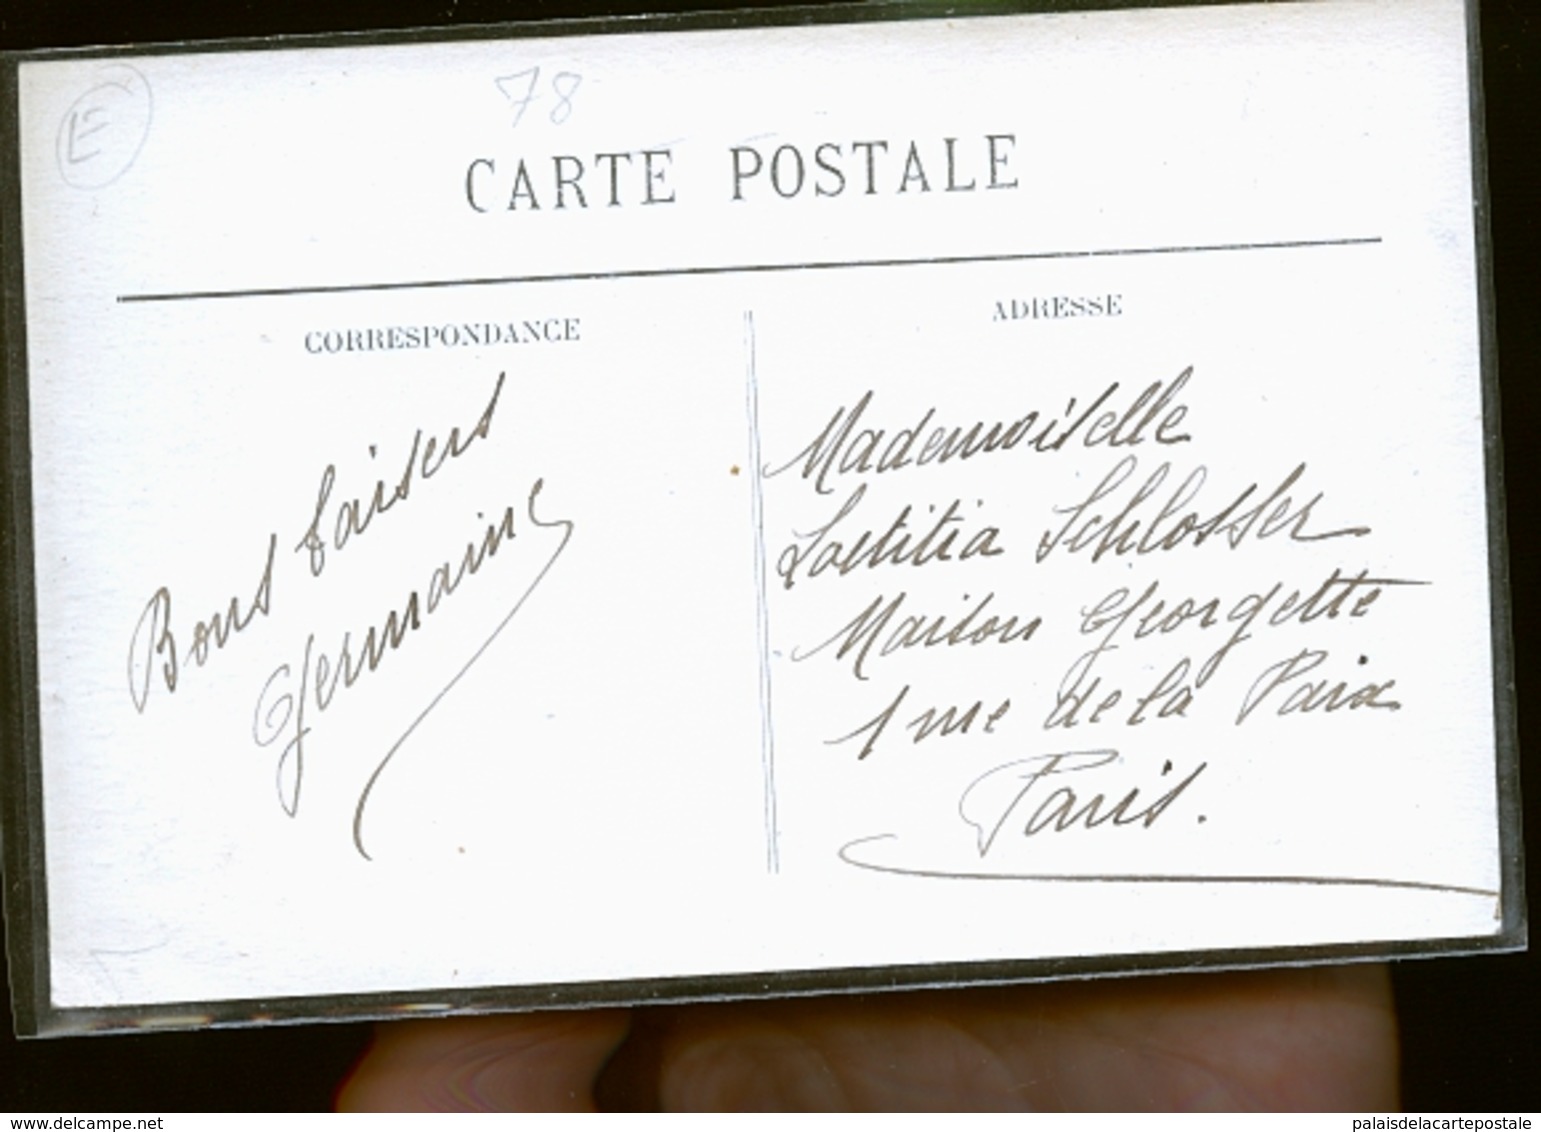 E
78
CARTE POSTALE
CORRESPONDANCE
ADRESSE
Bons baisers
Germaine
Mademoiselle
Laetitia Schlosser
Maison Georgette
1 rue de la Paix
Paris.
www.delcampe.net
palaisdelacartepostale